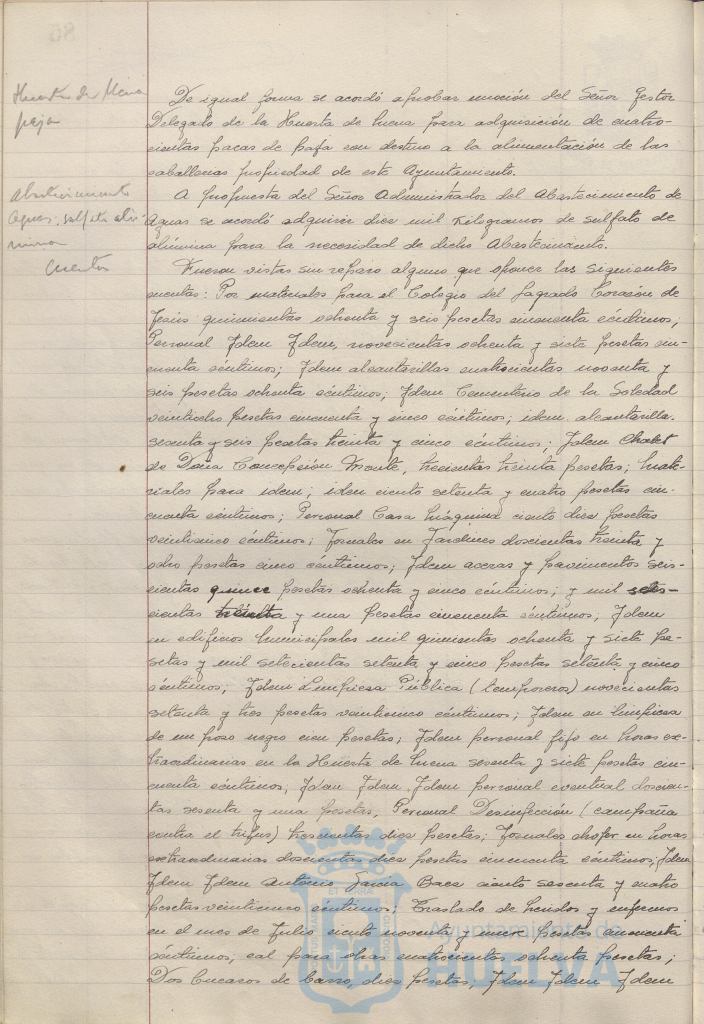 Huerta de Mena
paja
De igual forma se acordó aprobar moción del Señor Gestor
Delegado de la Huerta de Mena para adquisición de cuatro-
cientas pacas de paja con destino a la alimentación de las
caballerias propiedad de este Ayuntamiento.
Abastecimiento
Aguas. sulfato alú-
mina
A propuesta del Señor Administrador del Abastecimiento de
Aguas se acordó adquirir diez mil Kilogramos de sulfato de
alúmina para la necesidad de dicho Abastecimiento.
Cuentas
Fueron vistas sin reparo alguno que oponer las siguientes
cuentas: Por materiales para el Colegio del Sagrado Corazón de
Jesús quinientas ochenta y seis pesetas cincuenta céntimos;
Personal Idem Idem, novecientas ochenta y siete pesetas cin-
cuenta céntimos; Idem alcantarillas cuatrocientas noventa y
seis pesetas ochenta céntimos; Idem Cementerio de la Soledad
veintiocho pesetas cincuenta y cinco céntimos; idem alcantarilla
sesenta y seis pesetas treinta y cinco céntimos; Idem Chalet
de Doña Concepción Monte, trescientas treinta pesetas; Mate-
riales para idem; idem ciento setenta y cuatro pesetas cin-
cuenta céntimos; Personal Casa Máquina ciento diez pesetas
veinticinco céntimos; Jornales en Jardines doscientas treinta y
ocho pesetas cinco céntimos; Idem aceras y pavimentos seis-
cientas quince pesetas ochenta y cinco céntimos; y mil seis-
cientas treinta y una pesetas cincuenta céntimos; Idem
en edificios Municipales mil quinientas ochenta y siete pe-
setas y mil setecientas setenta y cinco pesetas setenta y cinco
céntimos; Idem Limpieza Pública (temporeros) novecientas
setenta y tres pesetas veinticinco céntimos; Idem en limpieza
de un pozo negro cien pesetas; Idem personal fijo en horas ex-
traordinarias en la Huerta de Mena sesenta y siete pesetas cin-
cuenta céntimos; Idem Idem, Idem personal eventual doscien-
tas sesenta y una pesetas, Personal Desinfección (campaña
contra el tifus) trescientas diez pesetas; Jornales chofer en horas
extraordinarias doscientas diez pesetas cincuenta céntimos; Idem
Idem Idem Antonio Garcia Baez ciento sesenta y cuatro
pesetas veinticinco céntimos; Traslado de heridos y enfermos
en el mes de Julio ciento noventa y nueve pesetas cincuenta
céntimos, cal para obras cuatrocientas ochenta pesetas;
Dos bucaros de barro, diez pesetas; Idem Idem Idem
Ayuntamiento de
HUELVA